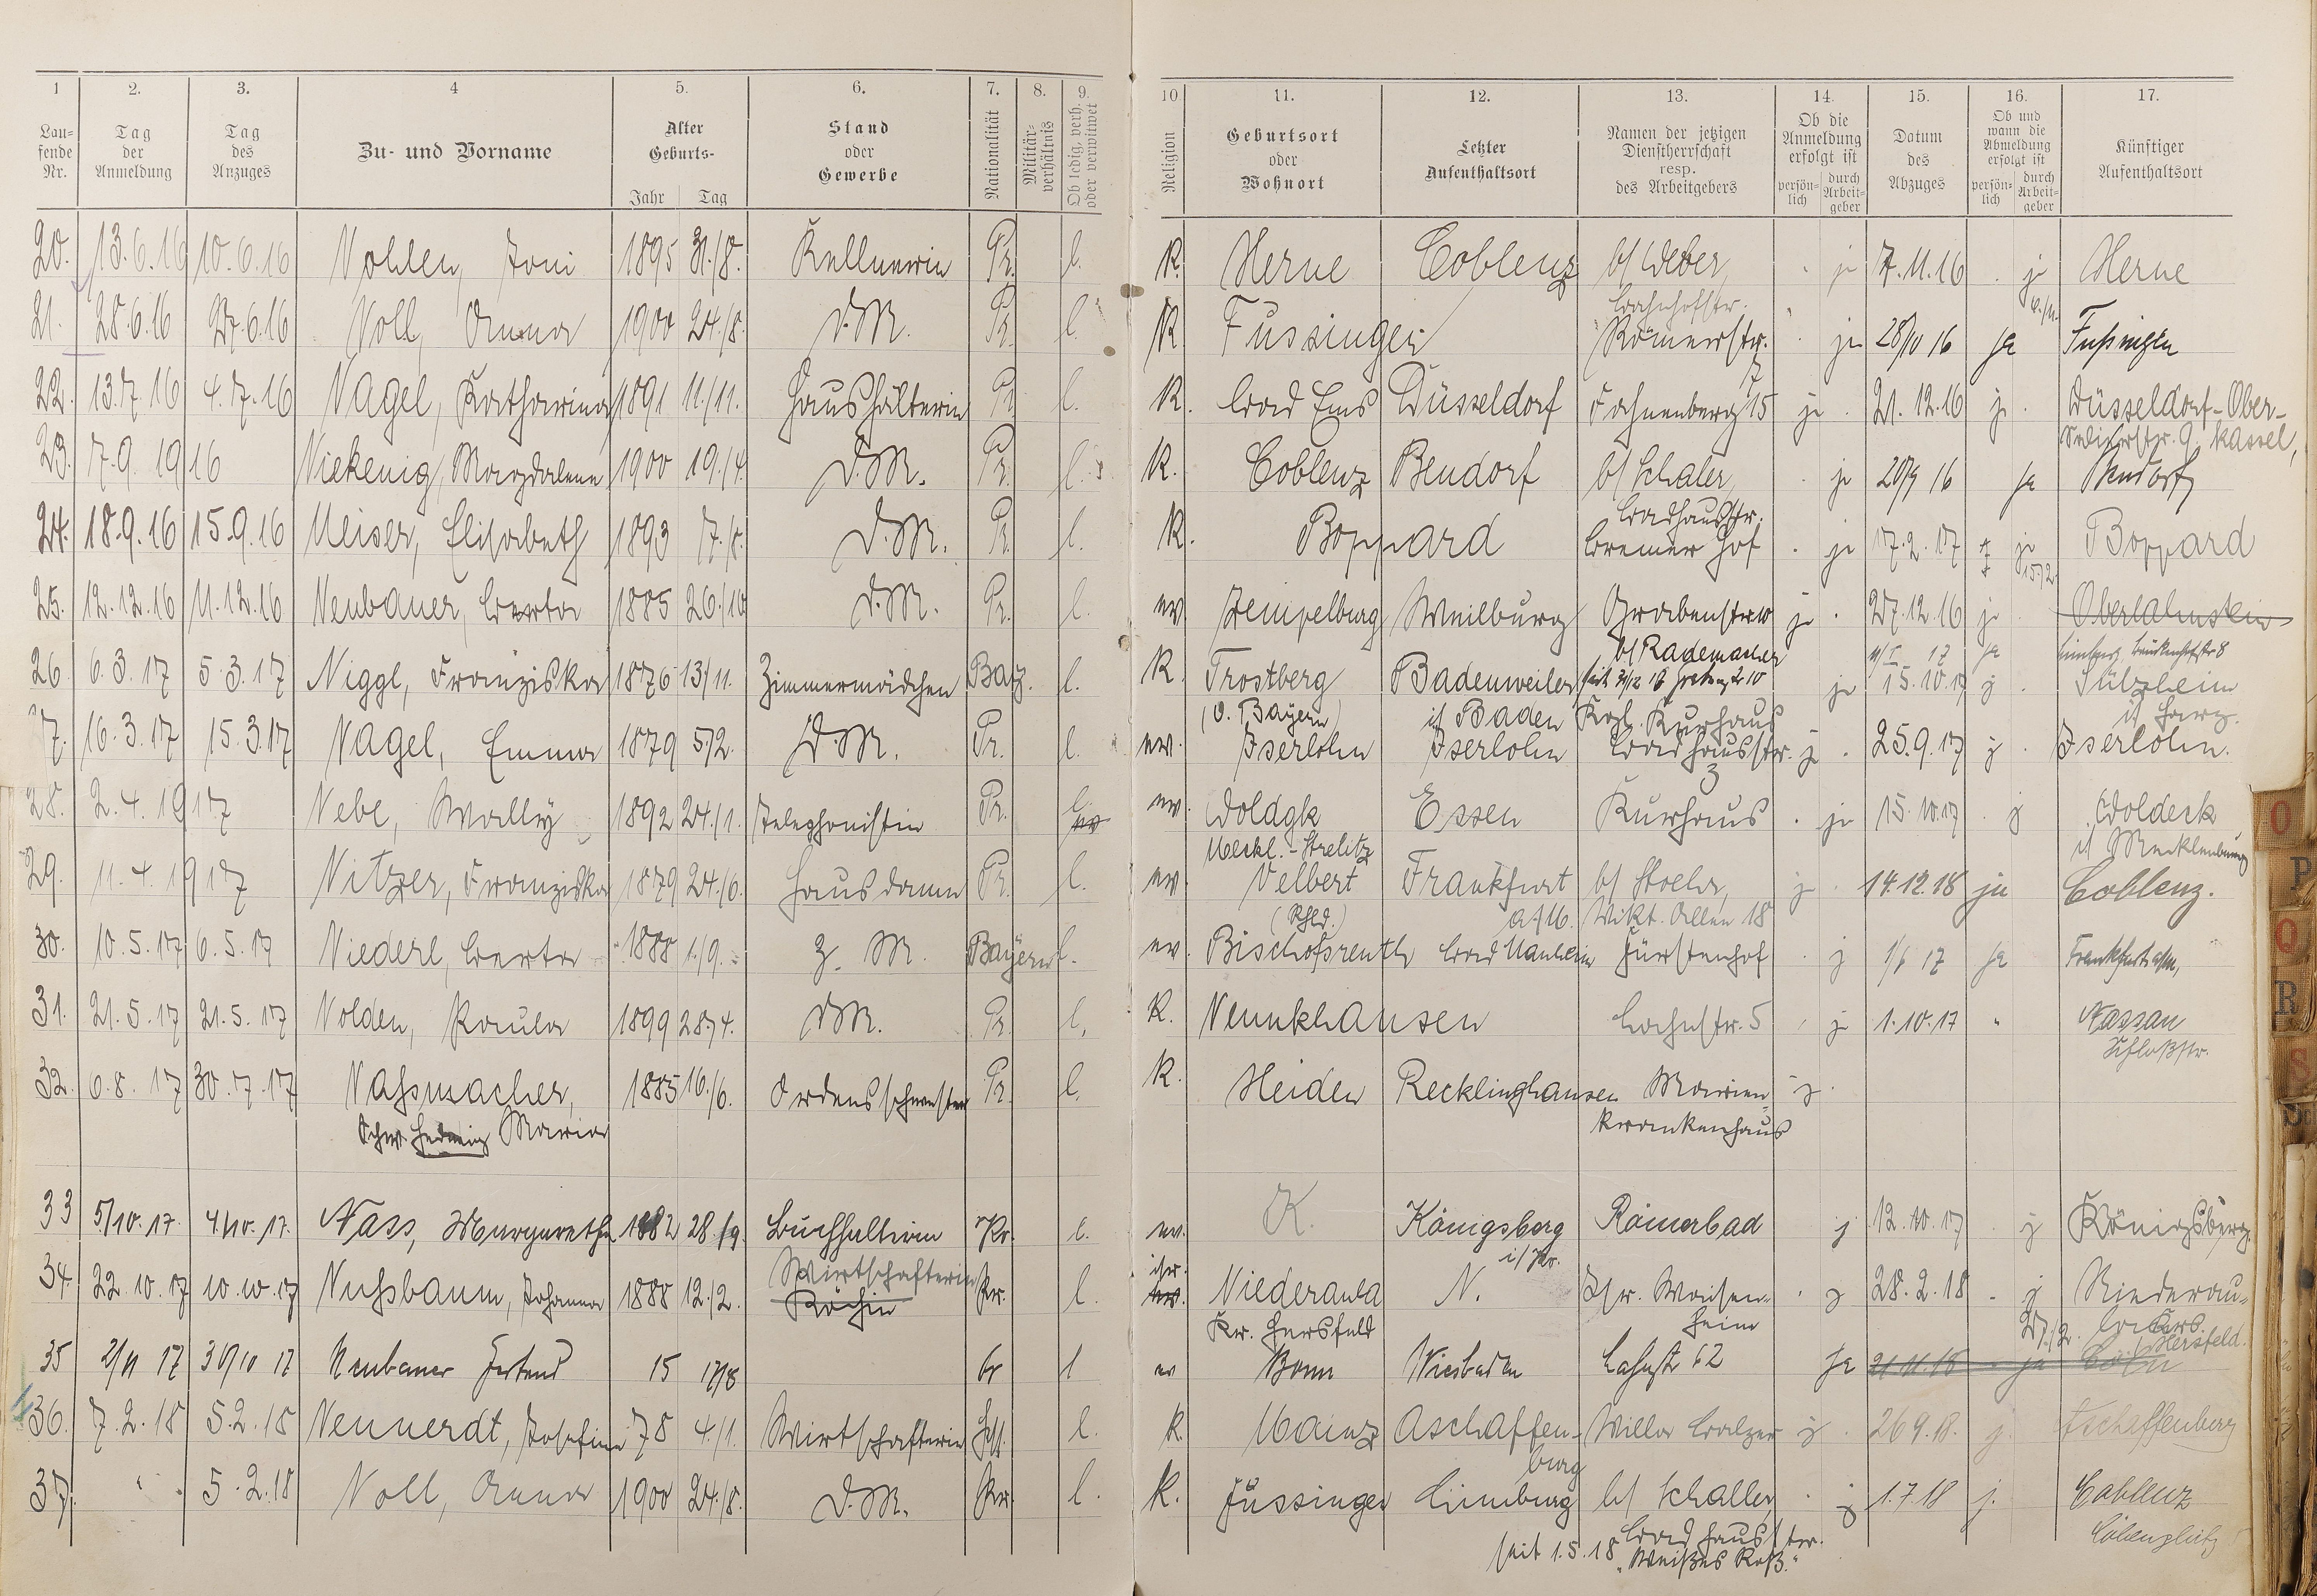 1 2. 3. 4 5. 6. 7. 8. 9. 10 11. 12. 13. 14. 15. 16. 17.
Laufende Nr. Tag der Anmeldung Tag des Anzuges Zu- und Vorname Alter Geburts- Jahr Tag Stand oder Gewerbe Nationalität Militärverhältnis Ob ledig, verh. oder verwitwet Religion Geburtsort oder Wohnort Letzter Aufenthaltsort Namen der jetzigen Dienstherrschaft resp. des Arbeitgebers Ob die Anmeldung erfolgt ist persönlich durch Arbeitgeber Datum des Abzuges Ob und wann die Abmeldung erfolgt ist persönlich durch Arbeitgeber Künftiger Aufenthaltsort
20. 13.6.16 10.6.16 Nohlen, Toni 1895 31./8. Kellnerin Pr. l. K. Herne Coblenz b/ Weber, ja 7.11.16 ja Herne
Bahnhofstr.
21. 28.6.16 27.6.16 Noll, Anna 1900 24./8. D.M. Pr. l. K. Fussingen Römerstr. ja 28/10 16 ja Fussingen
22. 13.7.16 4.7.16 Nagel, Katharina 1891 11./11. Haushälterin Pr. l. K. Bad Ems Düsseldorf Fachnenberg 15 ja 21.12.16 j. Düsseldorf-Ober-
9. Kassel,
23. 7.9.1916 Niekenig, Magdalene 1900 19./4. D.M. Pr. l. K. Coblenz Bendorf b/ Schaler, ja 20/9 16 ja Bendorf
Badhausstr.
24. 18.9.16 15.9.16 Meiser, Elisabeth 1893 D.M. Pr. l. K. Boppard Bremer Hof ja 17.2.17 ja Boppard
15./2.
25. 12.12.16 11.12.16 Neubauer, Berta 1885 26./10 D.M. Pr. l. ev. Zempelburg Weilburg Grabenstr. 10 ja 27.12.16 j. Oberlahnstein
b/ Rademacher 17 ja
26. 6.3.17 5.3.17 Niggl, Franziska 1876 13/11. Zimmermädchen Bay. l. K. Trostberg Badenweiler ja 15.10.17 j. Sülzhein
(O. Bayern) i/ Baden Kgl. Kurhaus i/ Harz.
27. 16.3.17 15.3.17 Nagel, Emma 1879 5/2. D.M. Pr. l. ev. Iserlohn Iserlohn Badhausstr. j. 25.9.17 j. Iserlohn.
3
28. 2.4.1917 Nebe, Wally 1892 24./1. Telephonistin Pr. l. ev. Woldgk Essen Kurhaus ja 15.10.17 j Woldeck
Meckl.-Strelitz i/ Mecklenburg
29. 11.4.1917 Nitzer, Franziska 1879 24./6. Hausdame Pr. l. ev. Velbert Frankfurt b/ Stoehr, j. 14.12.18 ja Coblenz.
(Rhld.) a./M. Vikt. Allee 18
30. 10.5.17 6.5.17 Niederl, Berta 1888 1./9. Z. M. Bayern l. ev. Bischofsreuth Bad Nauheim Fürstenhof j 1/6 17 ja Frankfurt a/M,
31. 21.5.17 21.5.17 Nolden, Paula 1899 28./4. DM. Pr. l. K. Neunkhausen Lahnstr. 5 j 1.10.17 Nassau
Schloßstr.
32. 6.8.17 30.7.17 Nassmacher, 1885 16./6. Ordensschwester Pr. l. K. Heiden Recklinghausen Marien- j.
Schw. Hedwig Maria krankenhaus
33 5/10.17. 4/10.17. Nass, Margarethe 1882 28./9. Buchhalterin Pr. l. ev. K. Königsberg Römerbad j 12.10.17 j Königsberg.
i/Pr.
34. 22.10.17 10.10.17 Nussbaum, Johanna 1888 12./2. Wirtschafterin Köchin Pr. l. isr. ev. Niederaula N. Isr. Waisen- j 28.2.18 j Niederau-
Kr. Hersfeld heim 27./2. Hersfeld.
35 2/11 17 31/10 17 Neubauer Gertrud 15 17/8 pr l ev Bonn Wiesbaden Lahnstr 62 ja 21.11.18 ja Cöln
36. 7.2.18 5.2.18 Nennerdt, Josefine 78 4/1. Wirtschafterin l. K. Mainz Aschaffen- Villa Balzer j. 26.9.18. j. Aschaffenberg
burg
37. " 5.2.18 Noll, Anna 1900 24./8. D.M. Pr. l. K. Fussingen Limburg b/ Schaller, j 1.7.18 j. Coblenz
Badhausstr.
seit 1.5.18 "Weißes Roß."
O
P
Q
R
S